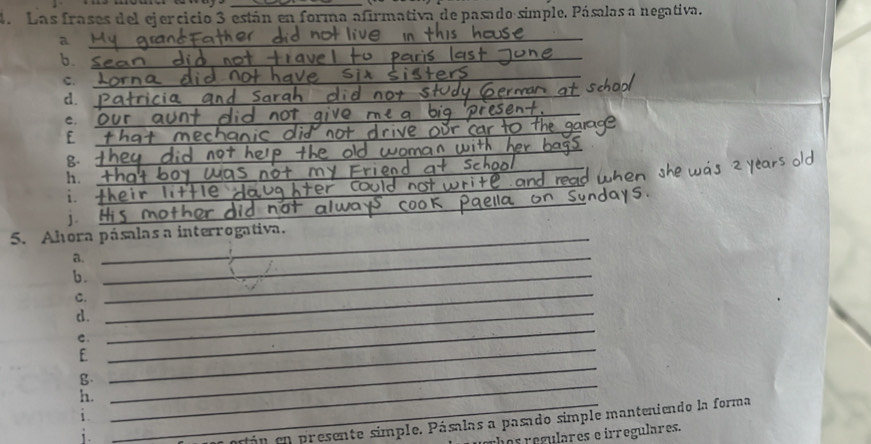 4. Las frases del ejercicio 3 están en forma afirmativa de pasado simple. Pásalas a negativa.
a. My grandFather did not live in this house
b. sean did not travel to paris last June
c. Lorna did not have six sisters
d. patricia and sarah did not study German at school
e. our aunt did not give me a big present.
f. that mechanic did not drive our car to the garage
g. they did not help the old woman with her bags
h. that boy was not my Friend at school
i. their little daughter could not write and read when she was 2 years old
j. His mother did not always cook paella on sundays.
5. Ahora pásalas a interrogativa.
a.
b.
c.
d.
e.
f.
g.
h.
i.
j.
están en presente simple. Pásalas a pasado simple manteniendo la forma
regulares e irregulares.